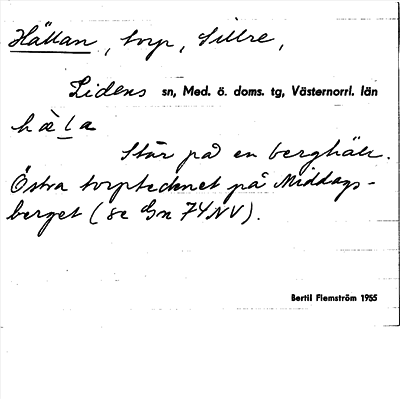 Hällan, torp, Sillre,
Lidens sn, Med. ö. doms. tg, Västernorrl. län
hὰḷa
Står på en berghäll.
Östra torptecknet på Middags-
berget (se Gn 74NV).
Bertil Flemström 1955